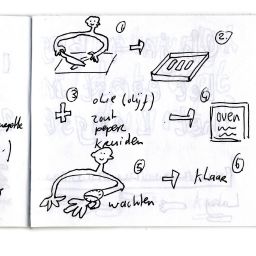 1
2
3
olie (olijf)
zout
peper
kruiden
4
oven
5
wachten
klaar
6